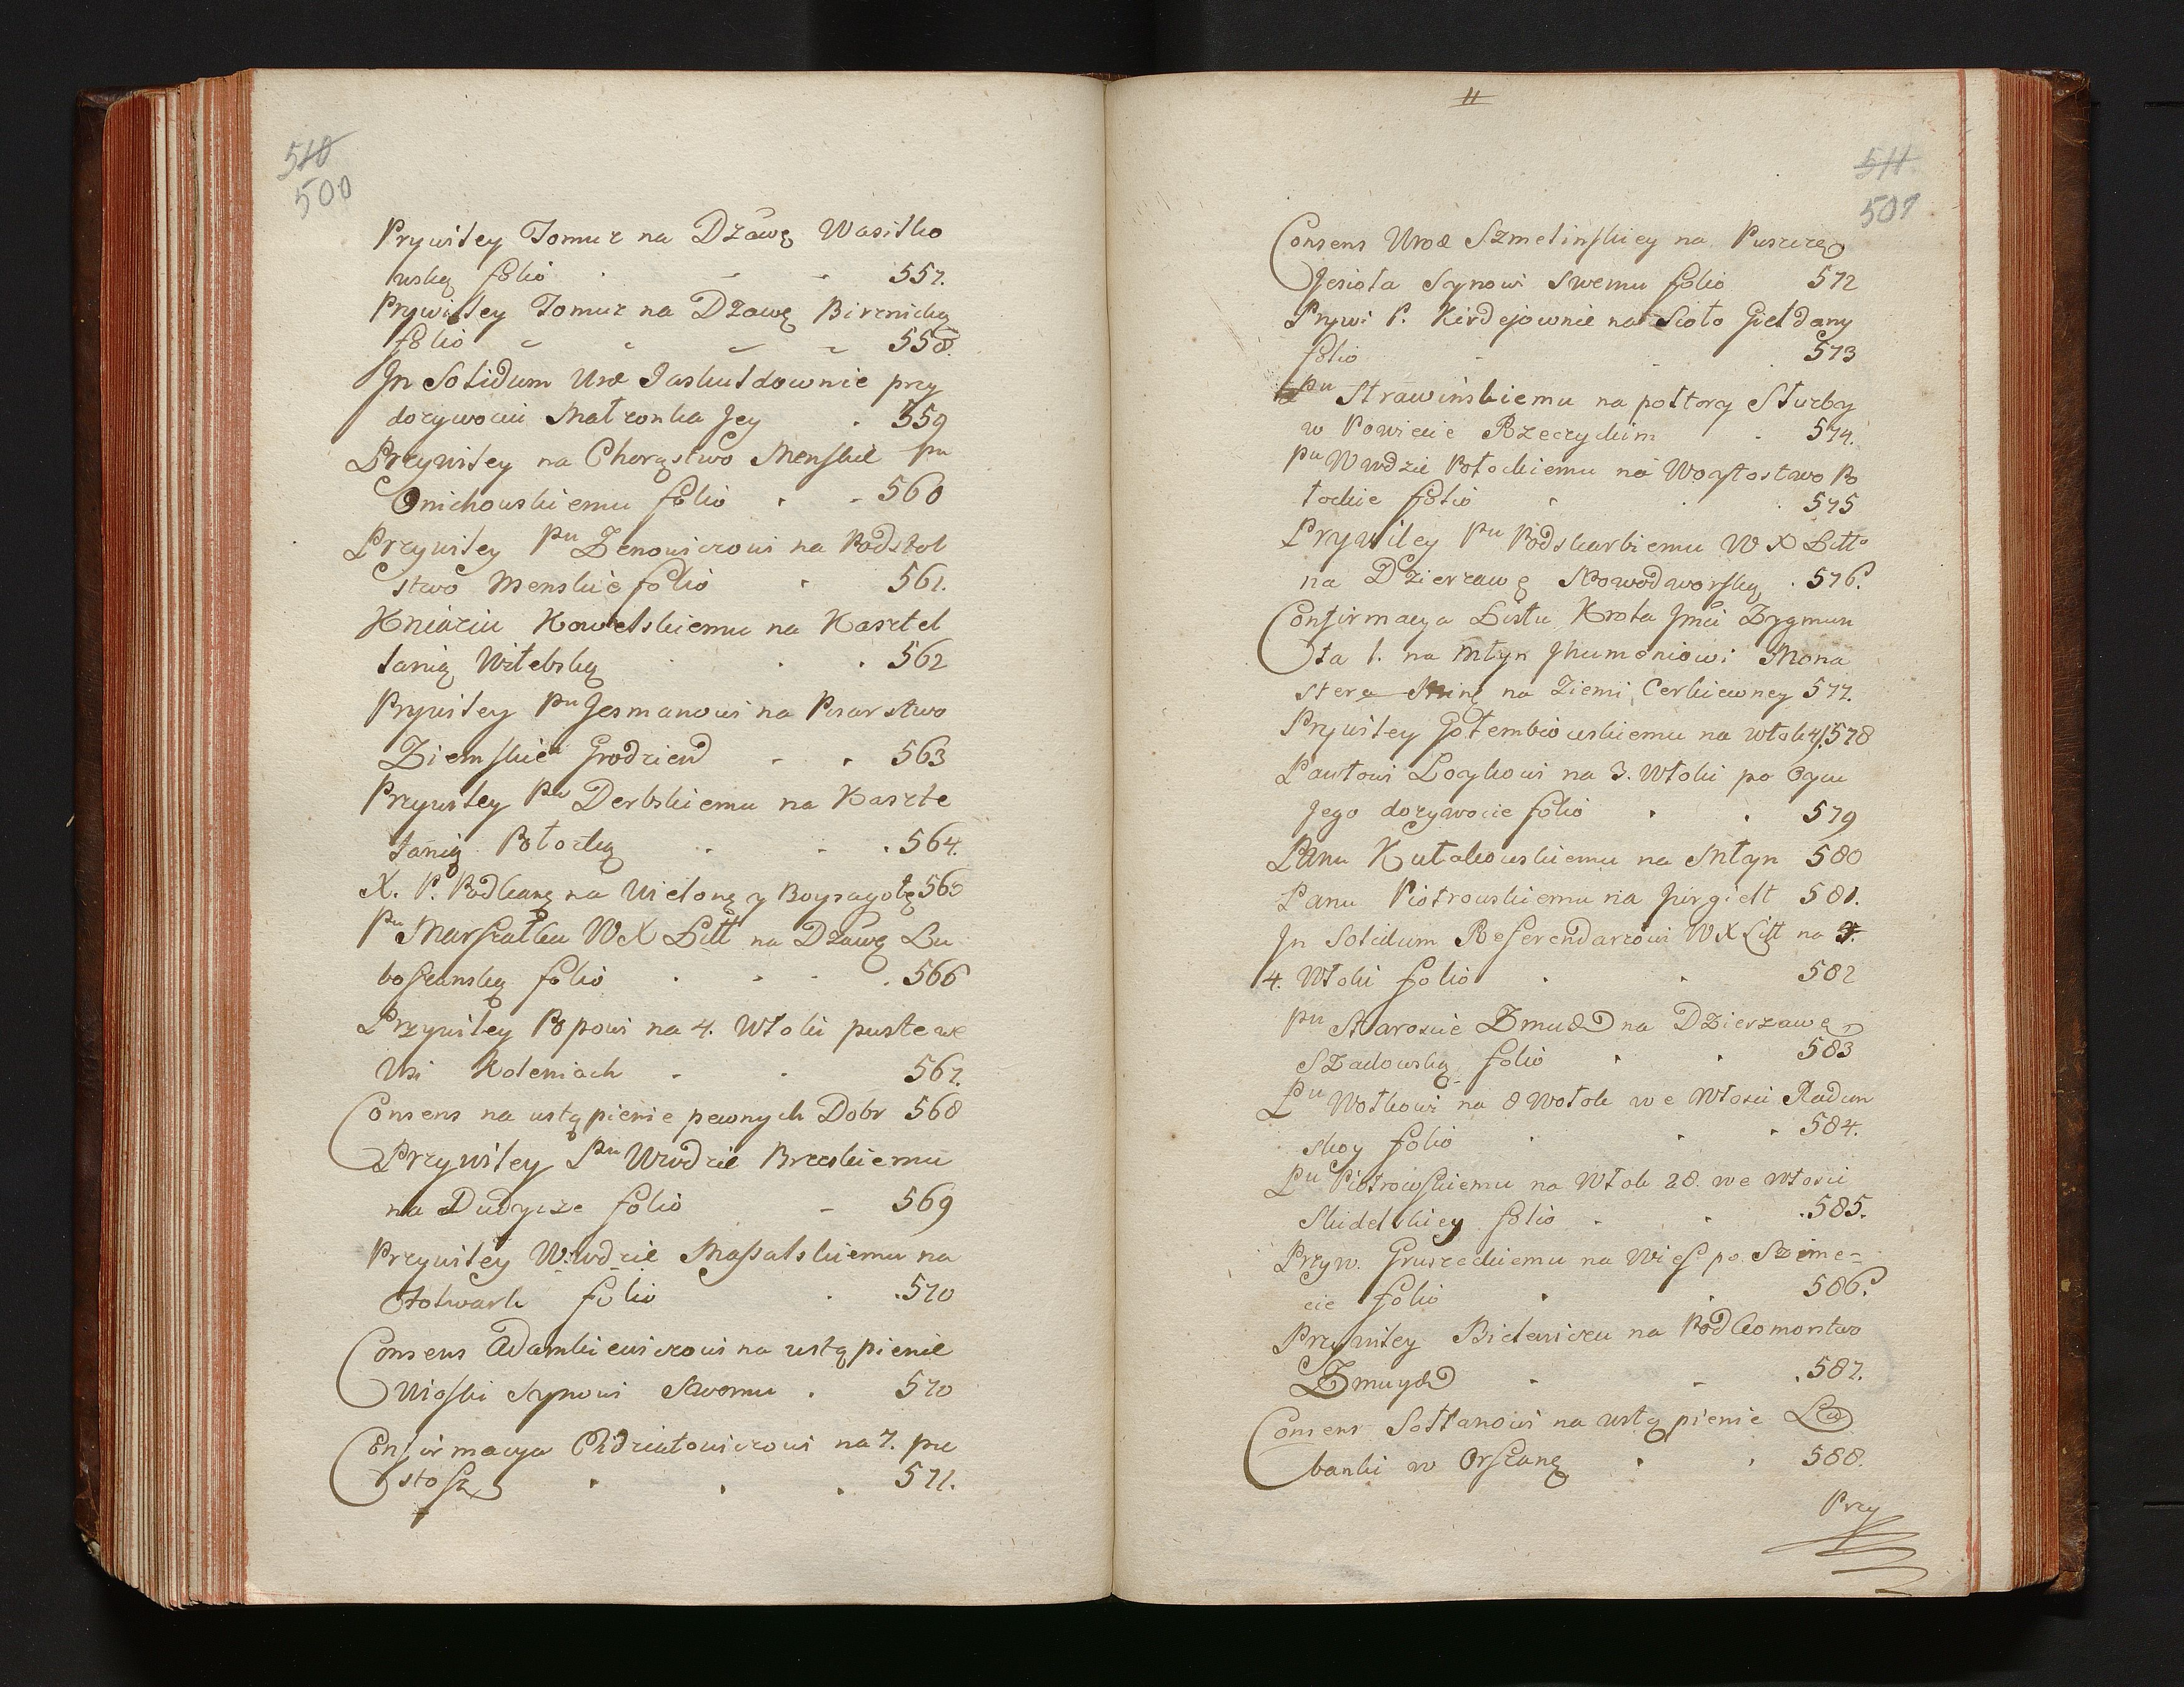 510
500
Prywiley Tomuz na Dzawę Wasilko
wską folio 557.
Prywiley Tomuz na Dzawę Birznicką
folio 558.
Jn Solidum Urod Jaskułdownie przy
dozywociu Małzonka Jey 559
Przywiley na Chorąstwo Menskie Pu
Onichowskiemu folio 560
Przywiley Pu Zenowiczowi na Podstol
stwo Menskie folio 561.
Kniaziu Kowelskiemu na Kasztel
lanią Witebską 562
Prywiley Pu Jesmanowi na Pisarstwo
Ziemskie Grodzień 563
Przywiley Pu Derbskiemu na Kaszte
lanią Połocką 564.
X. P. Podkanę na Wieloną y Boysagołę 565
Pu Marszałku WX Litt na Dzawę Lu
boszanską folio 566
Przywiley Popowi na 4. Włoki puste we
Wsi Koleniach 567.
Consens na ustąpienie pewnych Dobr 568
Przywiley Pu Wwodzie Brzeskiemu
na Dudycze folio 569
Przywiley Wwdzie Massalskiemu na
Folwark folio 570
Consens Adamkiewiczowi na ustąpienie
Wioski Synowi Swemu 570
Confirmacya Chdziałowiczowi na 7. pu
stosz 571.
11
511.
501
Consens Urod Szmelinskiey na Puszczę
Jesiota Synowi Swemu folio 572
Prywi P. Kirdejownie na Sioło Giełdany
folio 573
Pu Strawinskiemu na połtory Słuzby
w Powiecie Rzeczyckim 574.
Pu Wwdzie Połockiemu na Woytostwo Po
łockie folio 575
Prywiley Pu Podskarbiemu W X Litto
na Dzierzawę Nowodworską 576.
Confirmacya Listu Krola Jmci Zygmun
ta 1. na młyn Jhumeniowi Mona
stera na Ziemi Cerkiewney 577.
Prywiley Gołembiowskiemu na włok 4/578
Pawłowi Locykowi na 3. Włoki po Oycu
Jego dozywocie folio 579
Panu Kułakowskiemu na Młyn 580
Panu Piotrowskiemu na Jurgielt 581.
Jn Solidum Referendarzowi WX Litt na
4. Włoki folio 582
Pu Staroscie Zmudd na Dzierzawę
Szadowską folio 583
Pu Wołkowi na 8 Wołok we Włosci Radun
skoy folio 584.
Pu Piotrowskiemu na Włok 28. we włosci
Skidelskiey folio 585.
Przyw. Gruszeckiemu na Wies po Szeme-
cie folio 586.
Przywiley Bielewiczu na Podkomorstwo
Zmuyd 587.
Consens Sołtanowi na ustąpienie Lu
banki w Orszanę 588.
Przy